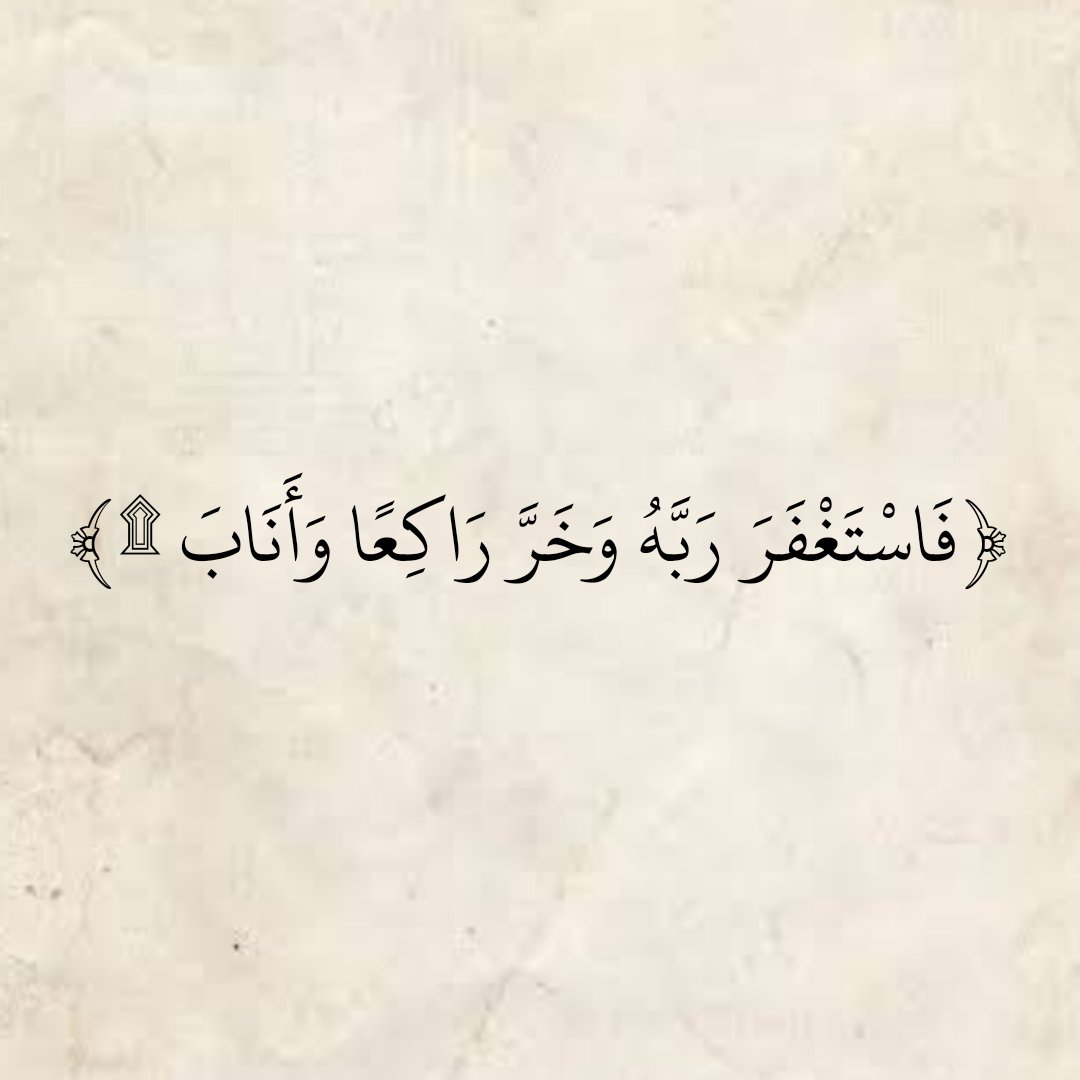 ﴿فَاسْتَغْفَرَ رَبَّهُ وَخَرَّ رَاكِعًا وَأَنَابَ ۩﴾